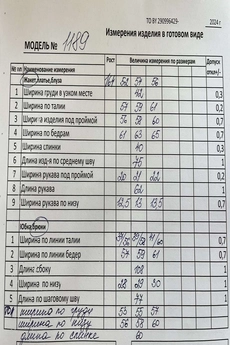 ТО BY 290996429- 2024 г
Измерения изделия в готовом виде
МОДЕЛЬ № 1189
№ п/п Наименование измерения Рост Величина измерения по размерам Допуск откл+/-
Жакет, платье, блуза 164 52 54 56
1 Ширина груди в узком месте 42 0,3
2 Ширина по талии 57 59 61 0,2
3 Ширина изделия под проймой 56 58 60 0,7
4 Ширина по бедрам 61 63 65 0,7
5 Ширина спинки 40 0,3
6 Длина изд-я по среднему шву 75 1
7 Ширина рукава под проймой 20 21 22 0,2
8 Длина рукава 62 1
9 Ширина рукава по низу 12,5 13 13,5 0,7
Юбка, брюки
1 Ширина по линии талии 0,7
2 Ширина по линии бедер 57 59 61 0,7
3 Длина сбоку 108 1
4 Ширина по низу 28 29 30
5 Длина по шаговому шву 77 1
ширина по груди 53 55 57
ширина по низу 56 58 60
длина по спинке 60